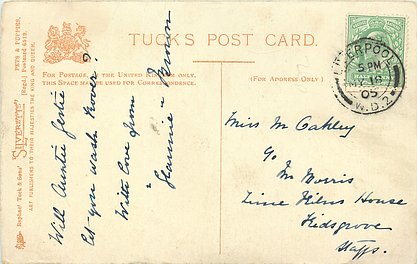 TUCK'S POST CARD.
FOR POSTAGE IN THE UNITED KINGDOM ONLY
THIS SPACE MAY BE USED FOR CORRESPONDENCE.
(FOR ADDRESS ONLY)
Raphael Tuck & Sons' "SILVERETTE"
PETS & PUPPIES.
ART PUBLISHERS TO THEIR MAJESTIES THE KING AND QUEEN.
LITTERPOOL
5 PM
05
HALFPENNY
Will Auntie Gertie
let you wash Rover?
With love from
Miss M Oakley
c/o
Mr Morris
Lime Kilns House
Kidsgrove
Staffs.